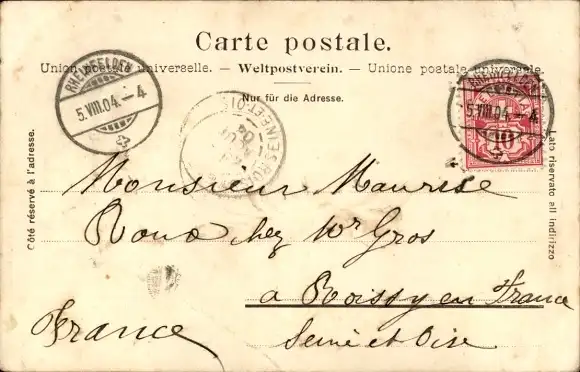 Carte postale.
Union postale universelle. — Weltpostverein. — Unione postale universale.
Nur für die Adresse.
RHEINFELDEN
5.VIII.04.–4
RHEINFELDEN
5.VIII.04.–4
10
Côté réservé à l'adresse.
Lato riservato all indirizzo
Monsieur Maurice
Roux chez Mr Gros
a Roissy en France
Seine et Oise
France